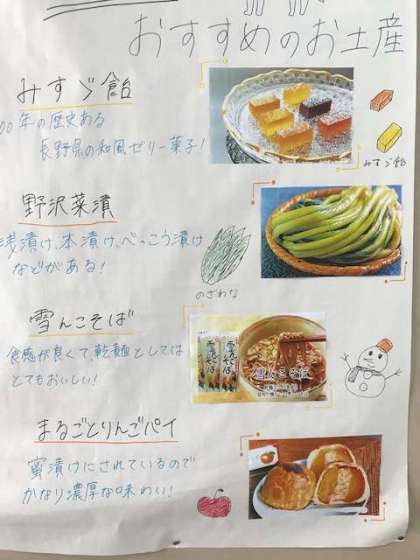 おすすめのお土産
みすゞ飴
00年の歴史ある
長野県の和風ゼリー菓子!
みすゞ飴
野沢菜漬
浅漬け、本漬け、べっこう漬け
などがある!
のざわな
雪んこそば
食感が良くて、乾麺としては
とてもおいしい!
雪んこそば
まるごとりんごパイ
蜜漬けにされているので
かなり濃厚な味わい!